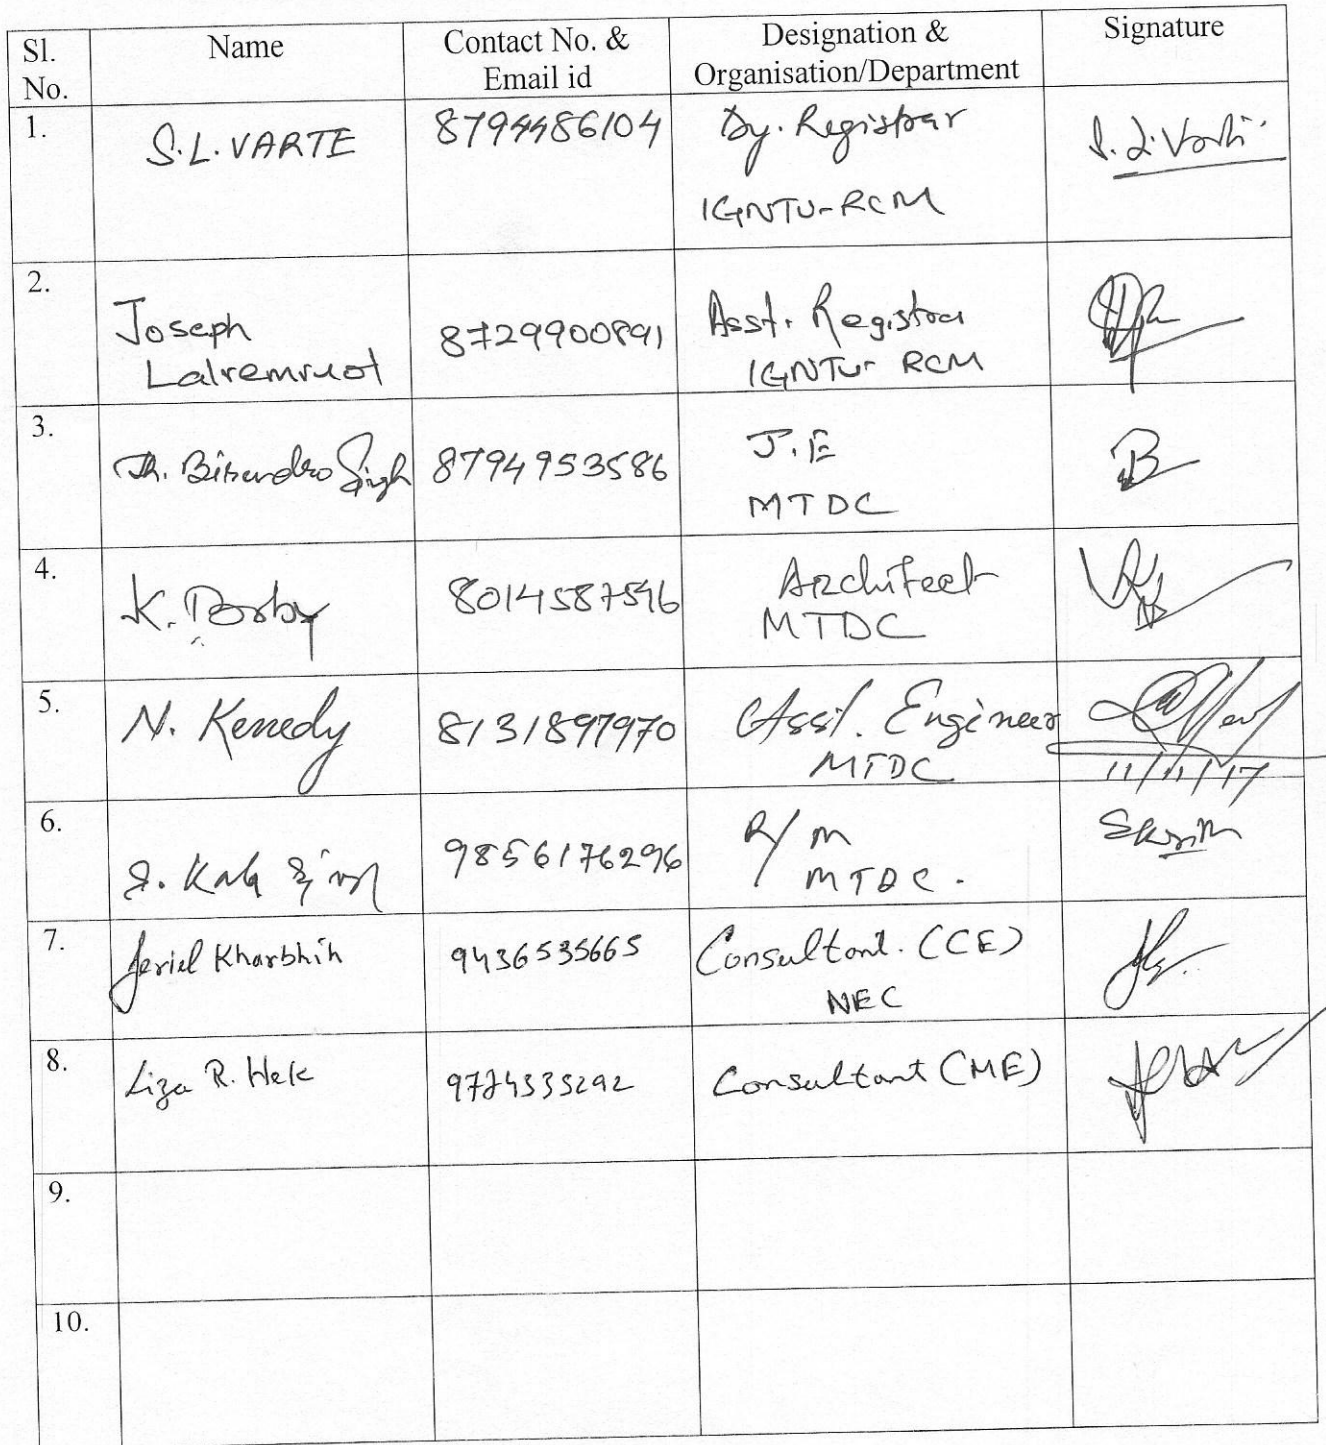 Sl. No.
Name
Contact No. & Email id
Designation & Organisation/Department
Signature
1.
S.L. VARTE
8794486104
Dy. Registrar
IGNTU-RCM
S. L. Varte
2.
Joseph
Lalremruot
8729900891
Asst. Registrar
IGNTU-RCM
3.
Th. Birendro Singh
8794953586
J.E
MTDC
4.
K.
8014587596
Architect
MTDC
5.
N. Kenedy
8131897970
Asst. Engineer
MTDC
11/11/17
6.
9856176296
R/M
MTDC.
7.
Jeriel Kharbhih
9436535665
Consultant. (CE)
NEC
8.
Liza R. Hek
Consultant (ME)
9.
10.